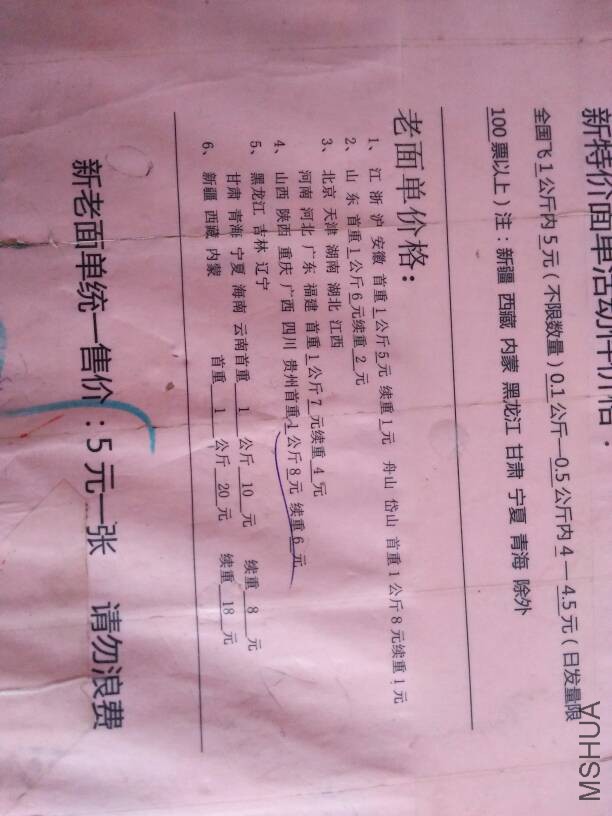 新特价面单活动件价格：
全国飞1公斤内5元（不限数量）0.1公斤—0.5公斤内4—4.5元（日发量限
100票以上）注：新疆 西藏 内蒙 黑龙江 甘肃 宁夏 青海 除外
老面单价格：
1、江 浙 沪 安徽 首重1公斤5元 续重1元 舟山 岱山 首重1公斤8元续重1元
2、山 东 首重1公斤6元续重2元
3、北京 天津 湖南 湖北 江西
河南 河北 广东 福建 首重1公斤7元续重4元
4、山西 陕西 重庆 广西 四川 贵州首重1公斤8元 续重6元
5、黑龙江 吉林 辽宁
甘肃 青海 宁夏 海南 云南首重 1 公斤 10 元 续重 8 元
6、新疆 西藏 内蒙 首重 1 公斤 20 元 续重 18 元
新老面单统一售价：5元一张 请勿浪费
MSHUA